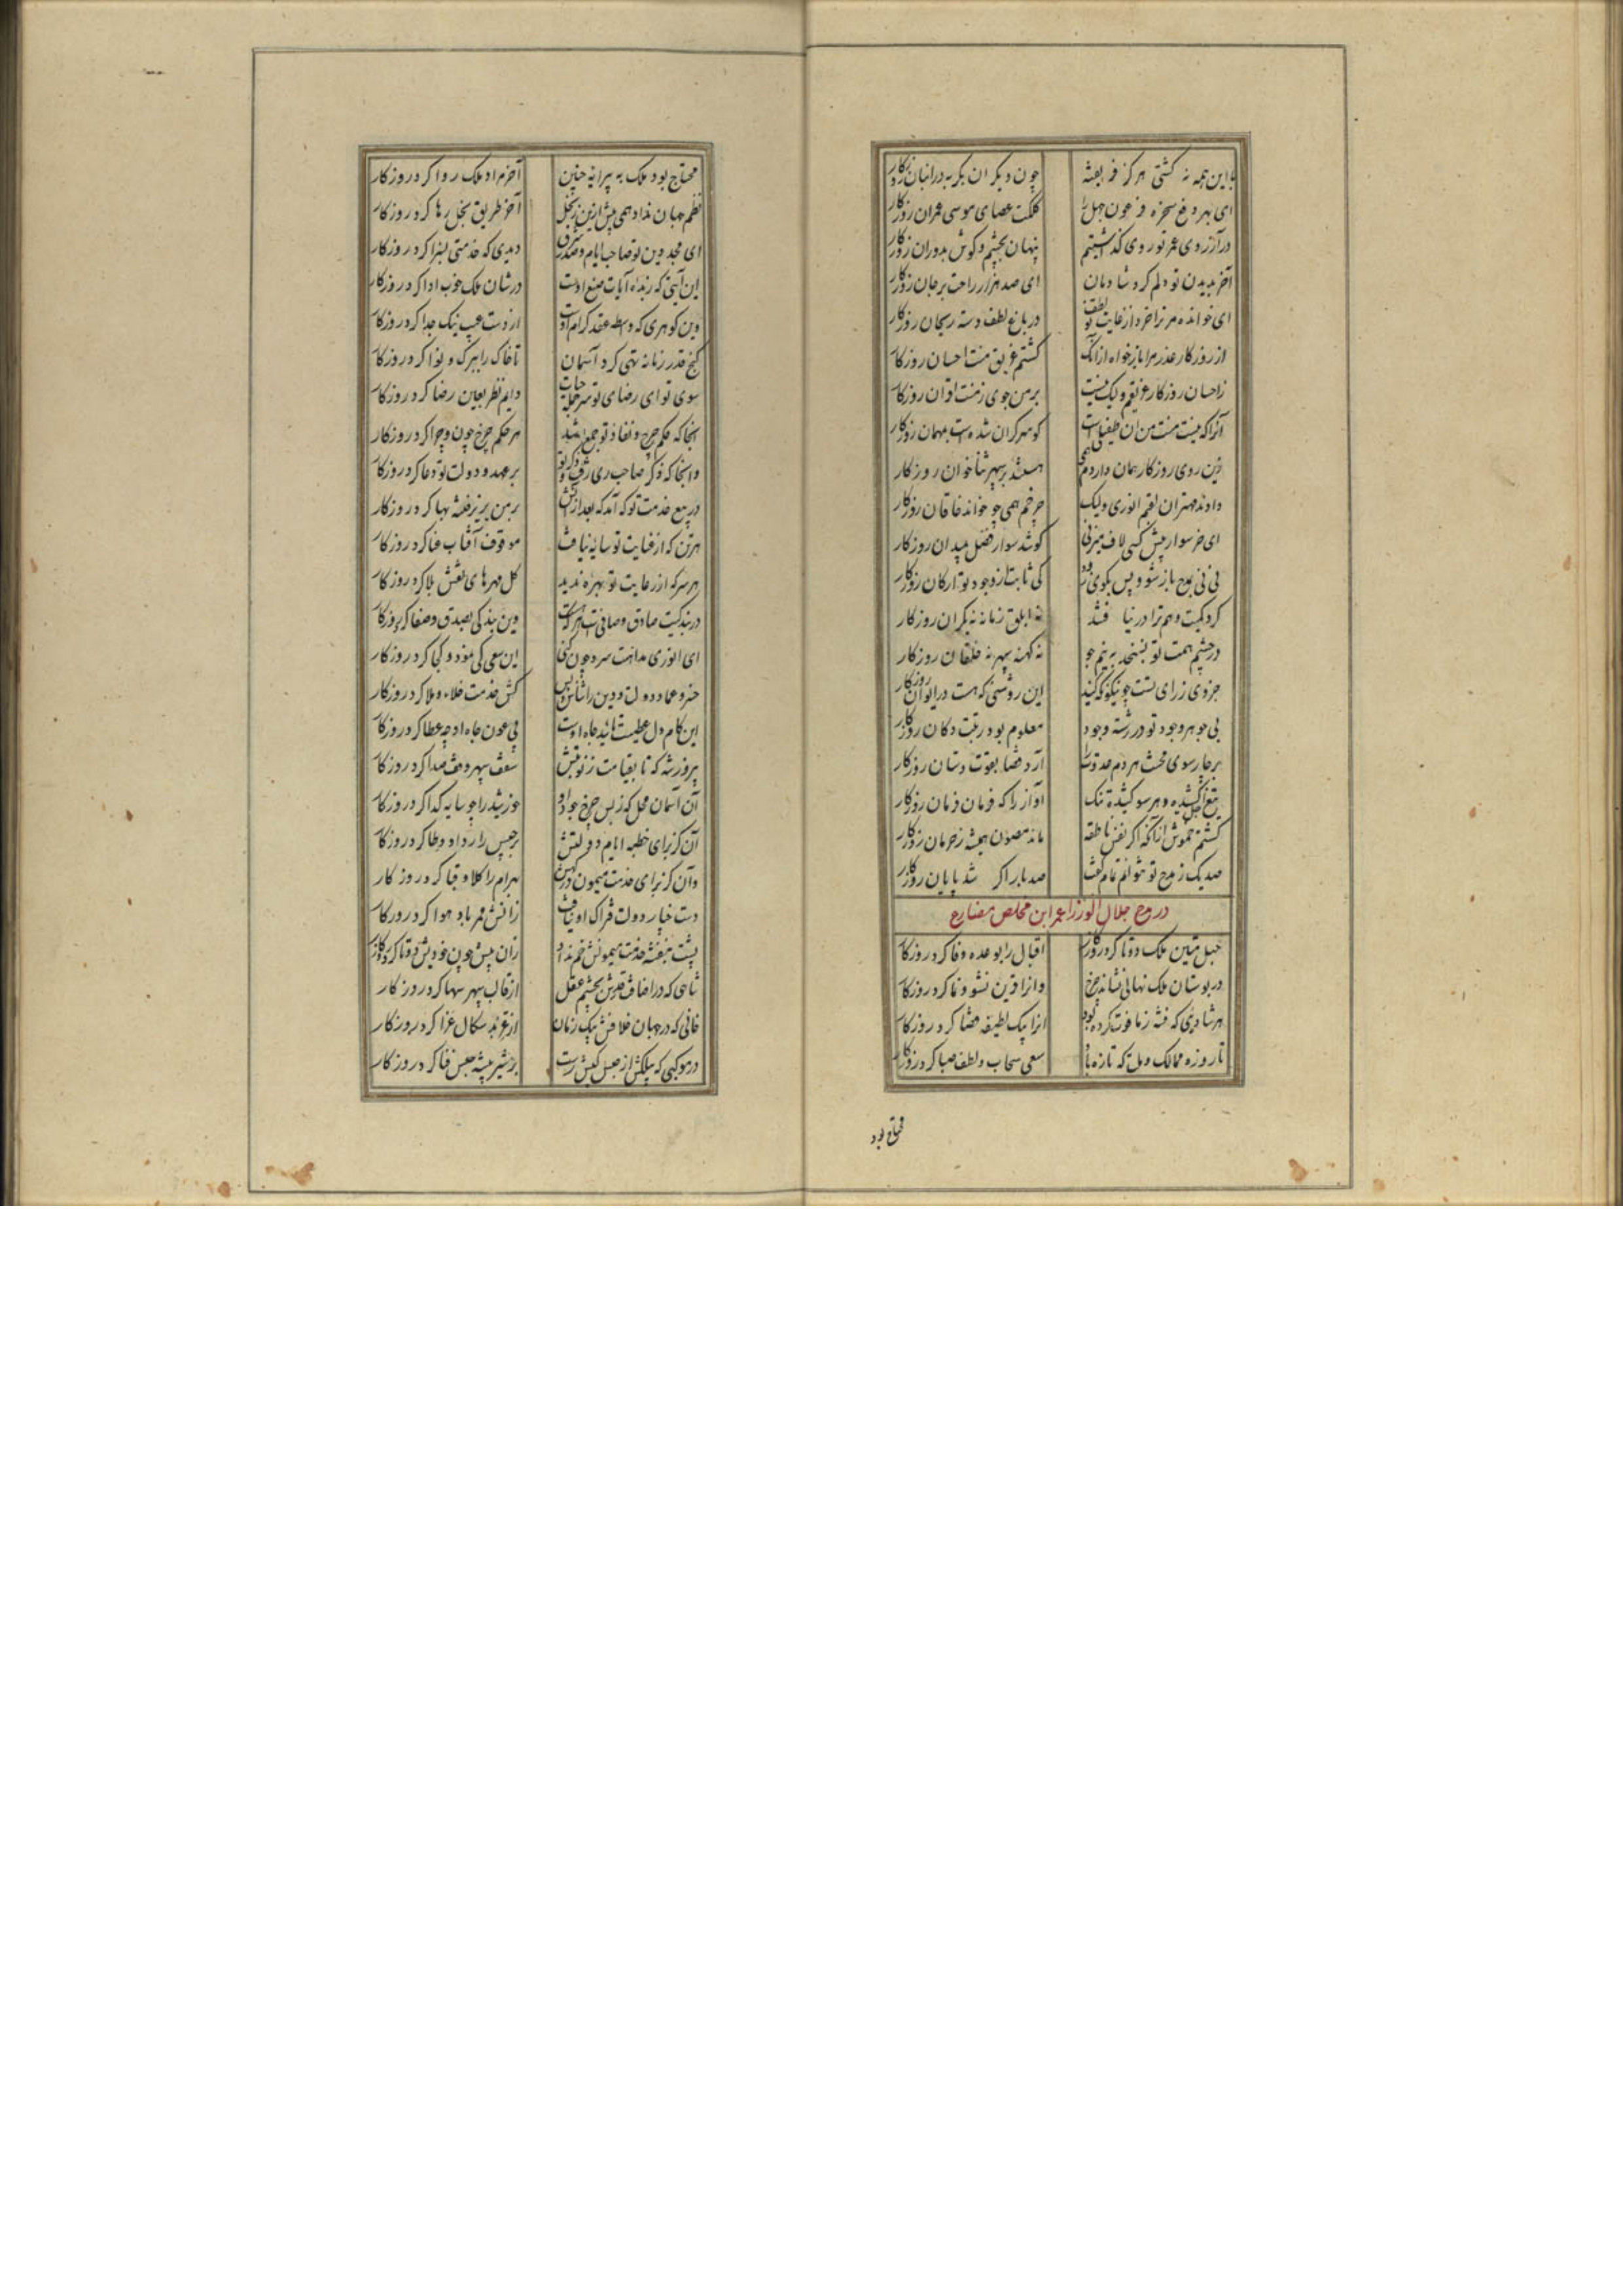 با این همه نه کشتی هرگز فریفته چون دیگران بگربه در انبان روزگار
ای بهر دفع سخره فرعون جهل را کلکت عصای موسی عمران روزگار
در آرزوی عمر تو روی گذاشتیم پنهان بچشم و گوش بدوران روزگار
آخر بدیدن تو دلم کرد شادمان ای صد هزار راحت بر جان روزگار
ای خوانده مر ترا خرد از غایت لطف در باغ لطف دسته ریحان روزگار
از روزگار عذر مرا بازخواه ازانک گشتم غریق منت احسان روزگار
زاحسان روزگار غریقم ولیک نیست بر من جوی ز منت الوان روزگار
آنرا که نیست منت من زان طفیلی است کو سرگران شده است بمهمان روزگار
زین روی روزگار همان دارد هستند بر سپهر ثناخوان روزگار
دادند مهتران لقبم انوری ولیک چرخم همی چو خواند خاقان روزگار
ای خر سوار پیش کسی لاف میزنی کو شد سوار فضل بمیدان روزگار
نی نی بمدح باز شو و پس بگوی زود کی ثابت از وجود تو ارکان روزگار
گرد کمیت وهم ترا در نیافتند نه ابلق زمانه نه یکران روزگار
در چشم همت تو نسنجد به نیم جو نه کهنه سپهر نه خلقان روزگار
جزوی ز رای تست چو نیکو نگه کنند این روشنی که هست در ایوان روزگار
بی جوهر وجود تو در رشته وجود معلوم بود رتبت دکان روزگار
بر چارسوی هر دم عدوت را آرد قضا بقوت دستان روزگار
تیغ اجل کشیده و هر سو کشیده تنگ آواز را که فرمان فرمان روزگار
گشتم خموش ازآنکه اگر نفس ناطقه ماند مصون همیشه ز حرمان روزگار
صد یک ز مدح تو نتوانم تمام گفت صد بار اگر شد پایان روزگار
در مدح جلال الوزرا عمر ابن مخلص مضارع
حبل متین ملک دوتا کرد روزگار اقبال را بوعده وفا کرد روزگار
در بوستان ملک نهالی نشاند چرخ وانرا قرین نشو و نما کرد روزگار
هر شادیی که فتنه ز ما فوت کرده بود انرا بیک لطیفه قضا کرد روزگار
تا روزه ممالک و ملت که تازه باد سعی سحاب و لطف صبا کرد روزگار
محتاج بود
محتاج بود ملک به پیرایه چنین آخر مراد ملک روا کرد روزگار
نظم جهان نداد همی پیش ازین ز بخل آخر طریق بخل رها کرد روزگار
ای مجد دین تو صاحب ایام و صدر شرق دیدی که خدمتی بسزا کرد روزگار
این آیتی که زبده آیات صنع اوست در شان ملک خوب ادا کرد روزگار
وین گوهری که واسطه عقد کرام اوست از دست عیب نیک جدا کرد روزگار
گنج قدر زمانه تهی کرد آسمان تا خاک را ببرگ و نوا کرد روزگار
سوی تو ای رضای تو سرجمله حیات دایم نظر بعین رضا کرد روزگار
انجا که حکم چرخ و نفاذ تو جمع شد هر حکم چرخ چون و چرا کرد روزگار
وانجا که ذکر صاحب ری رفت و ذکر تو بر عهد و دولت تو دعا کرد روزگار
در بیع خدمت تو که آمد که بعد ازآنش بر من یزید فتنه بها کرد روزگار
هر تن که از عنایت تو سایه نیافت موقوف آفتاب عنا کرد روزگار
هر سر که از رعایت تو بهره ندید گل مهره‌های نقش بلا کرد روزگار
در بندگیت صادق و صافی است هر که هست وین بندگی بصدق و صفا کرد روزگار
ای انوری مداهنت سرد چون کنی این سعی کی نمود و کجا کرد روزگار
خسرو عماد دولت و دین را شناس و بس کش خدمت خلاء و ملا کرد روزگار
این کام دل عطیت تایید جاه اوست بی عون جاه او چه عطا کرد روزگار
پیروز شه که تا بقیامت ز نوبتش سقف سپهر وقف صدا کرد روزگار
آن آسمان محل که ز بس چرخ جود او خورشید را چو سایه گدا کرد روزگار
آن کز برای خطبه ایام دولتش برجیس را ردا و وطا کرد روزگار
وآن کز برای خدمت میمون درگهش بهرام را کلاه و قبا کرد روزگار
دست خیار دولت فتراک او نیافت زانش ممر باد هوا کرد روزگار
پشت بنفشه خدمت میمونش خم نداد زان پیش چون خودیش دوتا کرد روزگار
شاهی که در اضافت قدرش بچشم عقل از قالب سپهر سها کرد روزگار
خانی که در جهان خلافش بیک زمان از عید سگال عزا کرد روزگار
در موکبی که پیلکش از حبس کیش رست بر شیر بیشه حبس فنا کرد روزگار